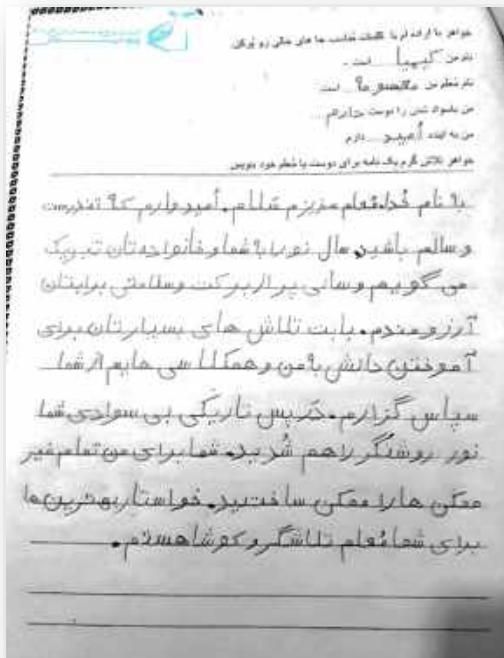 خواهر با اراده ام با کلمات مناسب جا های خالی رو پُرکن.
نام من کیمیا است.
نام معلم من معصومه است
من باسواد شدن را دوست دارم
من به آینده اُمید دارم
خواهر تلاش گرم یک نامه برای دوست یا معلم خود بنویس
به نام خُدا مُعلم عزیزم سَلام. اُمیدوارم که تندرست
و سالم باشین. سال نو را به شما و خانواده تان تبریک
می گویم و سالی پر از برکت و سلامتی برایتان
آرزومندم. بابت تلاش های بسیارتان برای
آموختن دانش به من و همکلاسی هایم از شما
سپاس گزارم. در پس تاریکی بی سوادی شما
نور روشنگر راهم شُدید. شما برای من تمام غیر
ممکن ها را ممکن ساختید. خواستار بهترین ها
برای شما مُعلم تلاشگر و کوشا هستم.